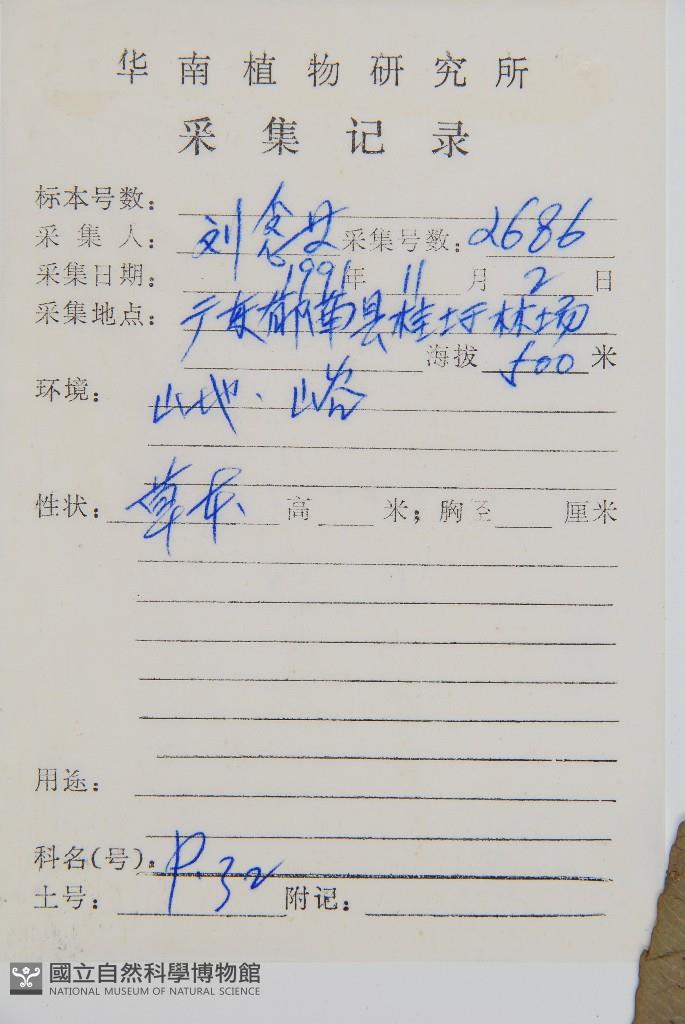 华南植物研究所
采集记录
标本号数:
采集人: 刘念 采集号数: 2686
采集日期: 1991年 11月 2日
采集地点: 广东郁南县桂圩林场
海拔 500 米
环境: 山地、山谷
性状: 草本、 高 米; 胸径 厘米
用途:
科名(号): P.32
土号: 附记:
國立自然科學博物館
NATIONAL MUSEUM OF NATURAL SCIENCE